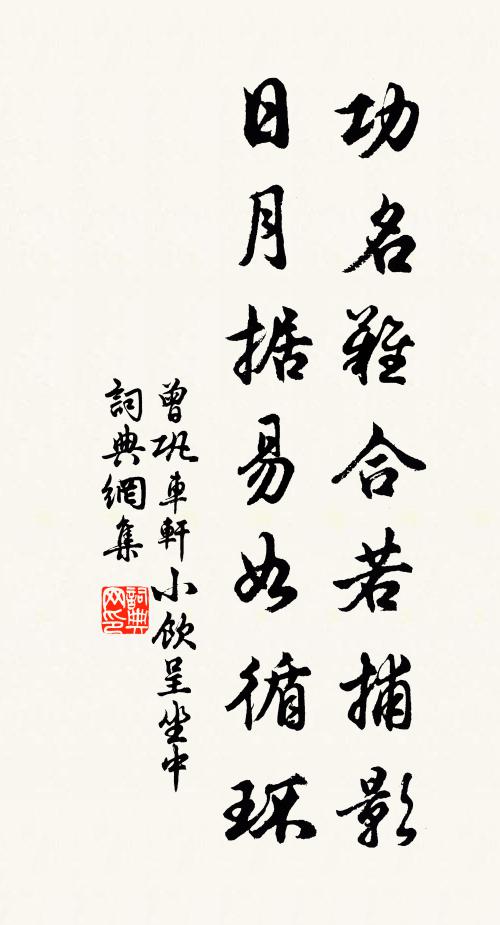 功名難合若捕影
日月据易如循环
曾巩車軒小飲呈坐中
詞典網集
詞典网印